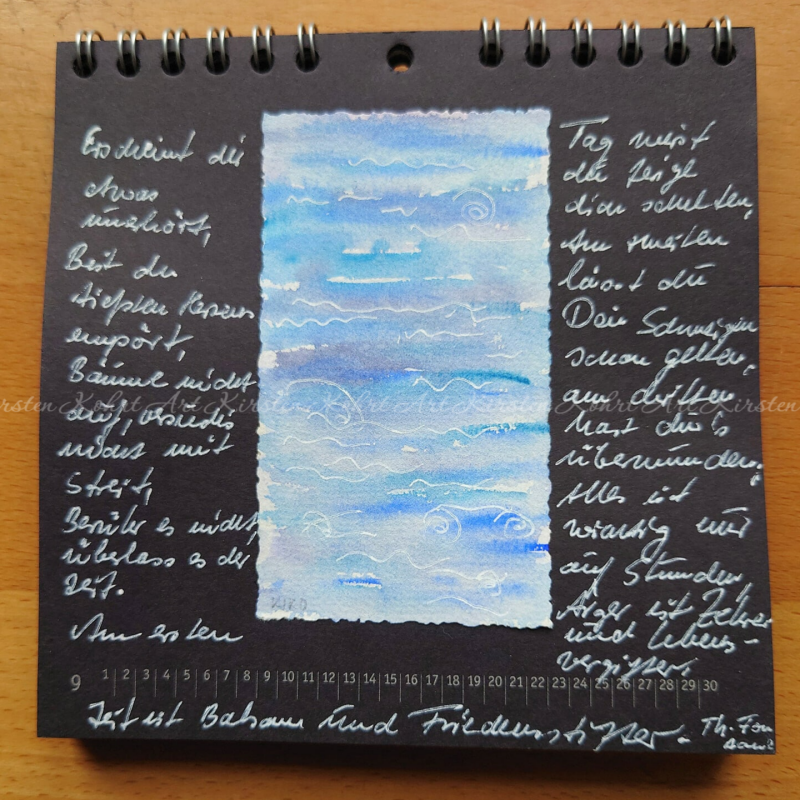 Erscheint dir
etwas
unerhört,
Bist du
tiefsten Herzens
empört,
Bäume nicht
auf, versuchs
nicht mit
Streit,
Berühr es nicht,
überlass es der
Zeit.
Am ersten
Tag wirst
du feige
dich schelten,
Am zweiten
lässt du
Dein Schweigen
schon gelten,
am dritten
hast du's
überwunden;
Alles ist
wichtig nur
auf Stunden,
Ärger ist Zehrer
und Lebens-
vergifter,
Zeit ist Balsam und Friedensstifter. Th. Fon
tane
9 1 2 3 4 5 6 7 8 9 10 11 12 13 14 15 16 17 18 19 20 21 22 23 24 25 26 27 28 29 30
Kirsten Kohrt Art Kirsten Kohrt Art Kirsten